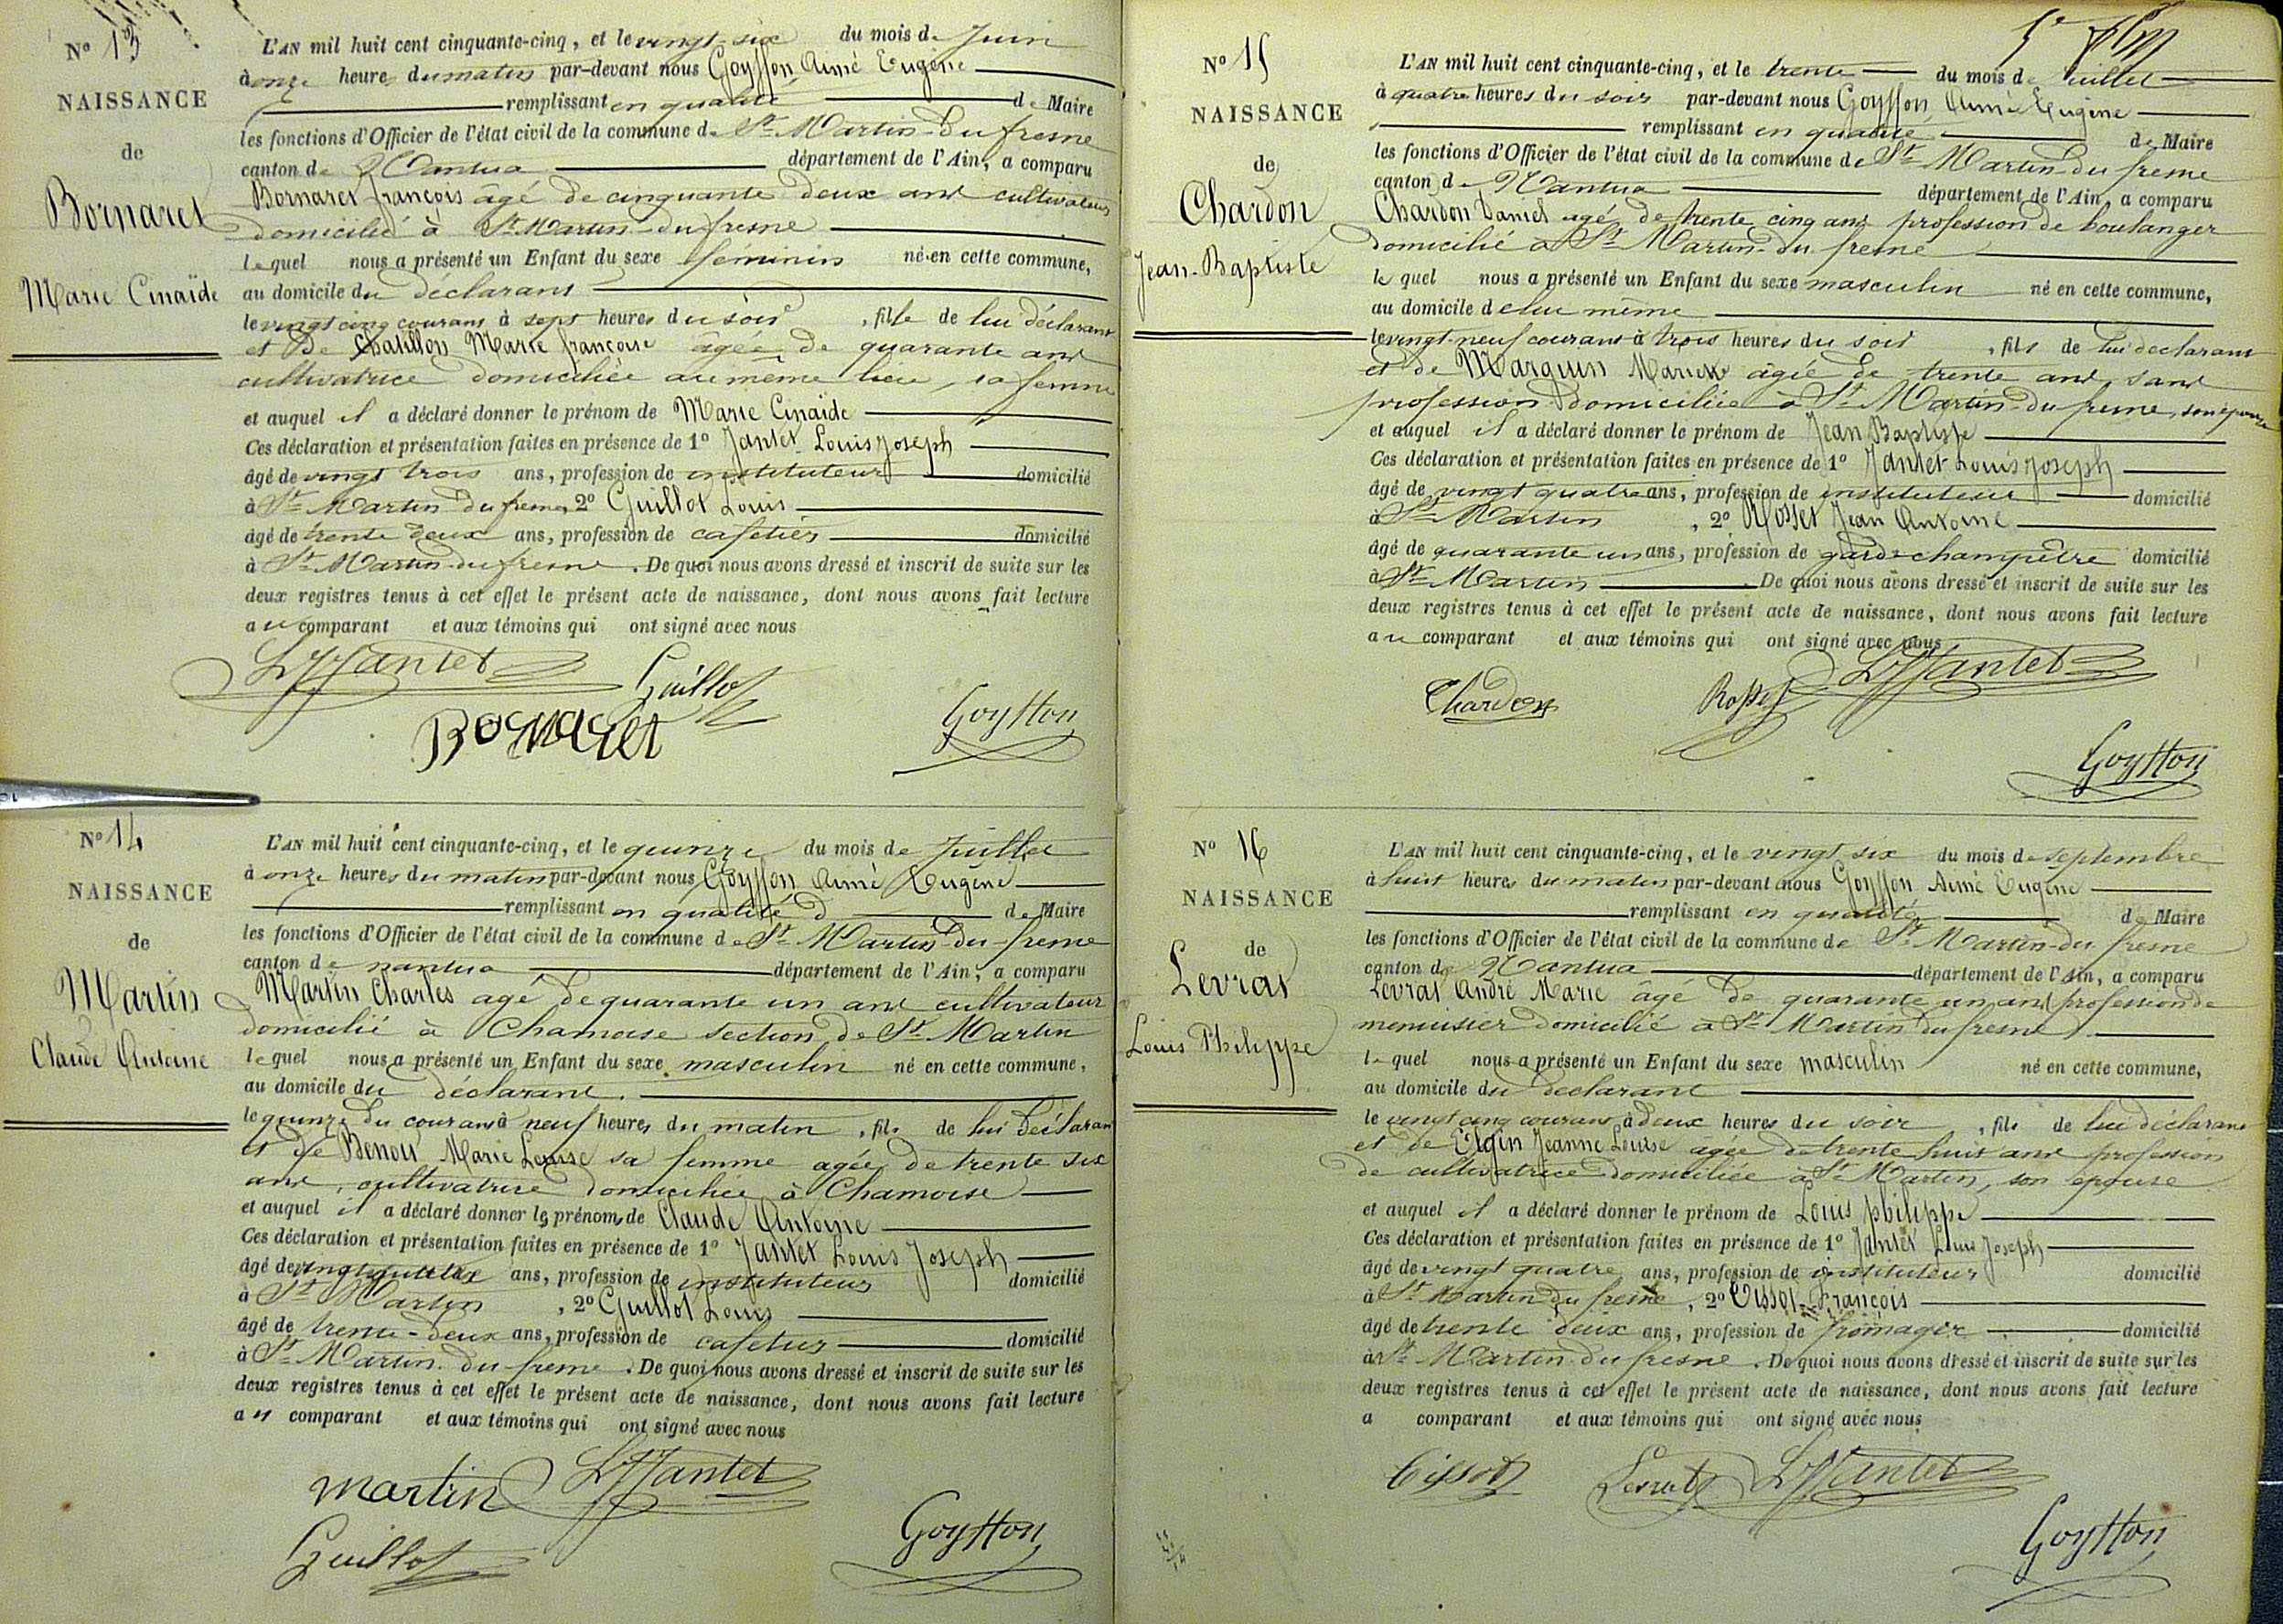 N° 13
NAISSANCE
de
Bornaret
Marie Cinaïde
L'AN mil huit cent cinquante-cinq, et le vingt-six du mois de Juin
à onze heures du matin par-devant nous Goyffon Aimé Eugène
remplissant en qualité de Maire
les fonctions d'Officier de l'état civil de la commune de St Martin-du fresne
canton de Nantua département de l'Ain, a comparu
Bornaret françois âgé de cinquante deux ans cultivateur
domicilié à St Martin-du fresne
lequel nous a présenté un Enfant du sexe féminin né en cette commune,
au domicile du déclarant
le vingt cinq courant à sept heures du soir, fille de lui déclarant
et de Chatillon Marie françoise âgée de quarante ans
cultivatrice domiciliée au même lieu, sa femme
et auquel il a déclaré donner le prénom de Marie Cinaïde
Ces déclaration et présentation faites en présence de 1° Jantet Louis Joseph
âgé de vingt trois ans, profession de instituteur domicilié
à St Martin du fresne, 2° Guillot Louis
âgé de trente deux ans, profession de cafetier domicilié
à St Martin-du fresne. De quoi nous avons dressé et inscrit de suite sur les
deux registres tenus à cet effet le présent acte de naissance, dont nous avons fait lecture
au comparant et aux témoins qui ont signé avec nous
LJJantet Guillot
Bornaret Goyffon
N° 14
NAISSANCE
de
Martin
Claude Antoine
L'AN mil huit cent cinquante-cinq, et le quinze du mois de Juillet
à onze heures du matin par-devant nous Goyffon Aimé Eugène
remplissant en qualité d de Maire
les fonctions d'Officier de l'état civil de la commune de St Martin-du-fresne
canton de nantua département de l'Ain, a comparu
Martin Charles agé de quarante un ans cultivateur
domicilié à Chamoise section de St Martin
lequel nous a présenté un Enfant du sexe masculin né en cette commune,
au domicile du déclarant.
le quinze du courant à neuf heures du matin, fils de lui déclarant
et de Benoit Marie Louise sa femme agée de trente six
ans, cultivatrice domiciliée à Chamoise
et auquel il a déclaré donner les prénoms de Claude Antoine
Ces déclaration et présentation faites en présence de 1° Jantet Louis Joseph
âgé de ans, profession de instituteur domicilié
à St Martin, 2° Guillot Louis
âgé de trente-deux ans, profession de cafetier domicilié
à St Martin du fresne. De quoi nous avons dressé et inscrit de suite sur les
deux registres tenus à cet effet le présent acte de naissance, dont nous avons fait lecture
au comparant et aux témoins qui ont signé avec nous
martin LJJantet
Guillot Goyffon
N° 15
NAISSANCE
de
Chardon
Jean-Baptiste
L'AN mil huit cent cinquante-cinq, et le trente du mois de Juillet
à quatre heures du soir par-devant nous Goyffon Aimé Eugène
remplissant en qualité de Maire
les fonctions d'Officier de l'état civil de la commune de St Martin-du fresne
canton de Nantua département de l'Ain, a comparu
Chardon Daniel agé de trente cinq ans profession de boulanger
domicilié à St Martin-du fresne
le quel nous a présenté un Enfant du sexe masculin né en cette commune,
au domicile de lui même
le vingt-neuf courant à trois heures du soir, fils de lui déclarant
et de Marguin âgée de trente ans, sans
profession domiciliée à St Martin-du fresne, son épouse
et auquel il a déclaré donner le prénom de Jean Baptiste
Ces déclaration et présentation faites en présence de 1° Jantet Louis Joseph
âgé de vingt quatre ans, profession de instituteur domicilié
à St Martin, 2° Rosset Jean Antoine
âgé de quarante un ans, profession de garde champêtre domicilié
à St Martin. De quoi nous avons dressé et inscrit de suite sur les
deux registres tenus à cet effet le présent acte de naissance, dont nous avons fait lecture
au comparant et aux témoins qui ont signé avec nous
Chardon Rosset LJJantet
Goyffon
N° 16
NAISSANCE
de
Levrat
Louis Philippe
L'AN mil huit cent cinquante-cinq, et le vingt six du mois de septembre
à huit heures du matin par-devant nous Goyffon Aimé Eugène
remplissant en qualité de Maire
les fonctions d'Officier de l'état civil de la commune de St Martin-du fresne
canton de Nantua département de l'Ain, a comparu
Levrat André Marie âgé de quarante un ans profession de
menuisier domicilié à St Martin du fresne
lequel nous a présenté un Enfant du sexe masculin né en cette commune,
au domicile du déclarant
le vingt cinq courant à deux heures du soir, fils de lui déclarant
et de Elgin Jeanne Louise agée de trente huit ans profession
de cultivatrice domiciliée à St Martin, son épouse
et auquel il a déclaré donner le prénom de Louis philippe
Ces déclaration et présentation faites en présence de 1° Jantet Louis Joseph
âgé de vingt quatre ans, profession de instituteur domicilié
à St Martin du fresne, 2° Tissot François
âgé de trente deux ans, profession de fromager domicilié
à St Martin du fresne. De quoi nous avons dressé et inscrit de suite sur les
deux registres tenus à cet effet le présent acte de naissance, dont nous avons fait lecture
a comparant et aux témoins qui ont signé avec nous
Tissot Levrat LJJantet
Goyffon